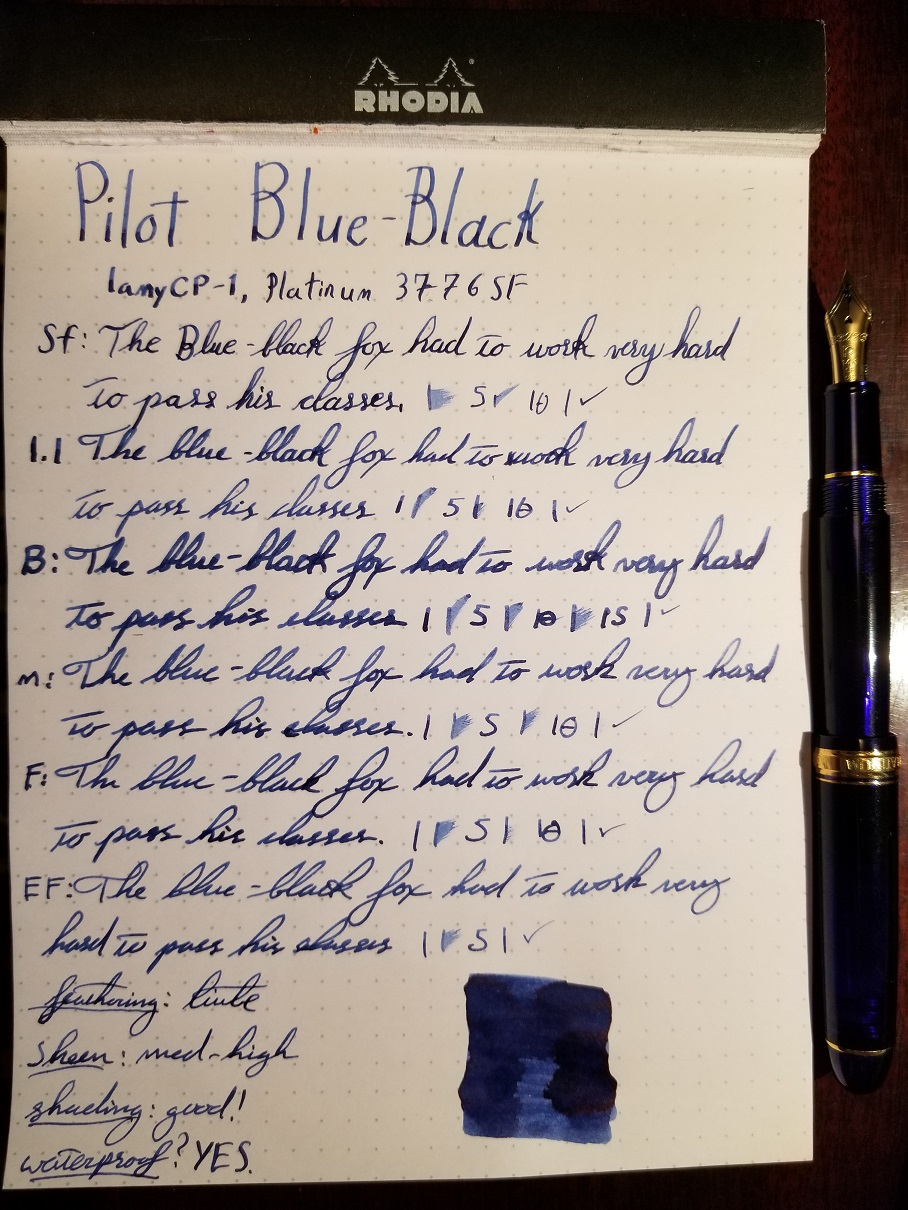 RHODIA
Pilot Blue-Black
lamy CP-1, Platinum 3776 SF
Sf: The Blue-black fox had to work very hard
to pass his classes. | 5 ✓ 10 | ✓
1.1 The blue-black fox had to work very hard
to pass his classes | 5 | 10 | ✓
B: The blue-black fox had to work very hard
to pass his classes | 5 10 15 | ✓
m: The blue-black fox had to work very hard
to pass his classes. | 5 10 | ✓
F: The blue-black fox had to work very hard
to pass his classes. | 5 | 10 | ✓
EF: The blue-black fox had to work very
hard to pass his classes | 5 | ✓
feathering: little
Sheen: med-high
shading: good!
waterproof? YES.